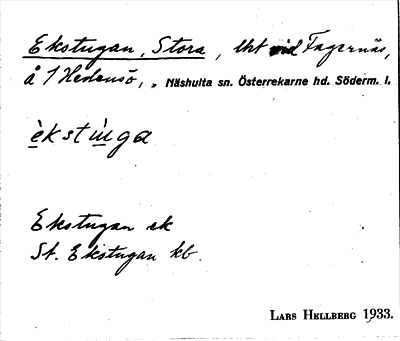 Ekstugan, Stora, lht vid Fagernäs,
å 1 Hedensö, „ Näshulta sn. Österrekarne hd. Söderm. l.
èkstùga
Ekstugan ek
St. Ekstugan kb.
LARS HELLBERG 1933.